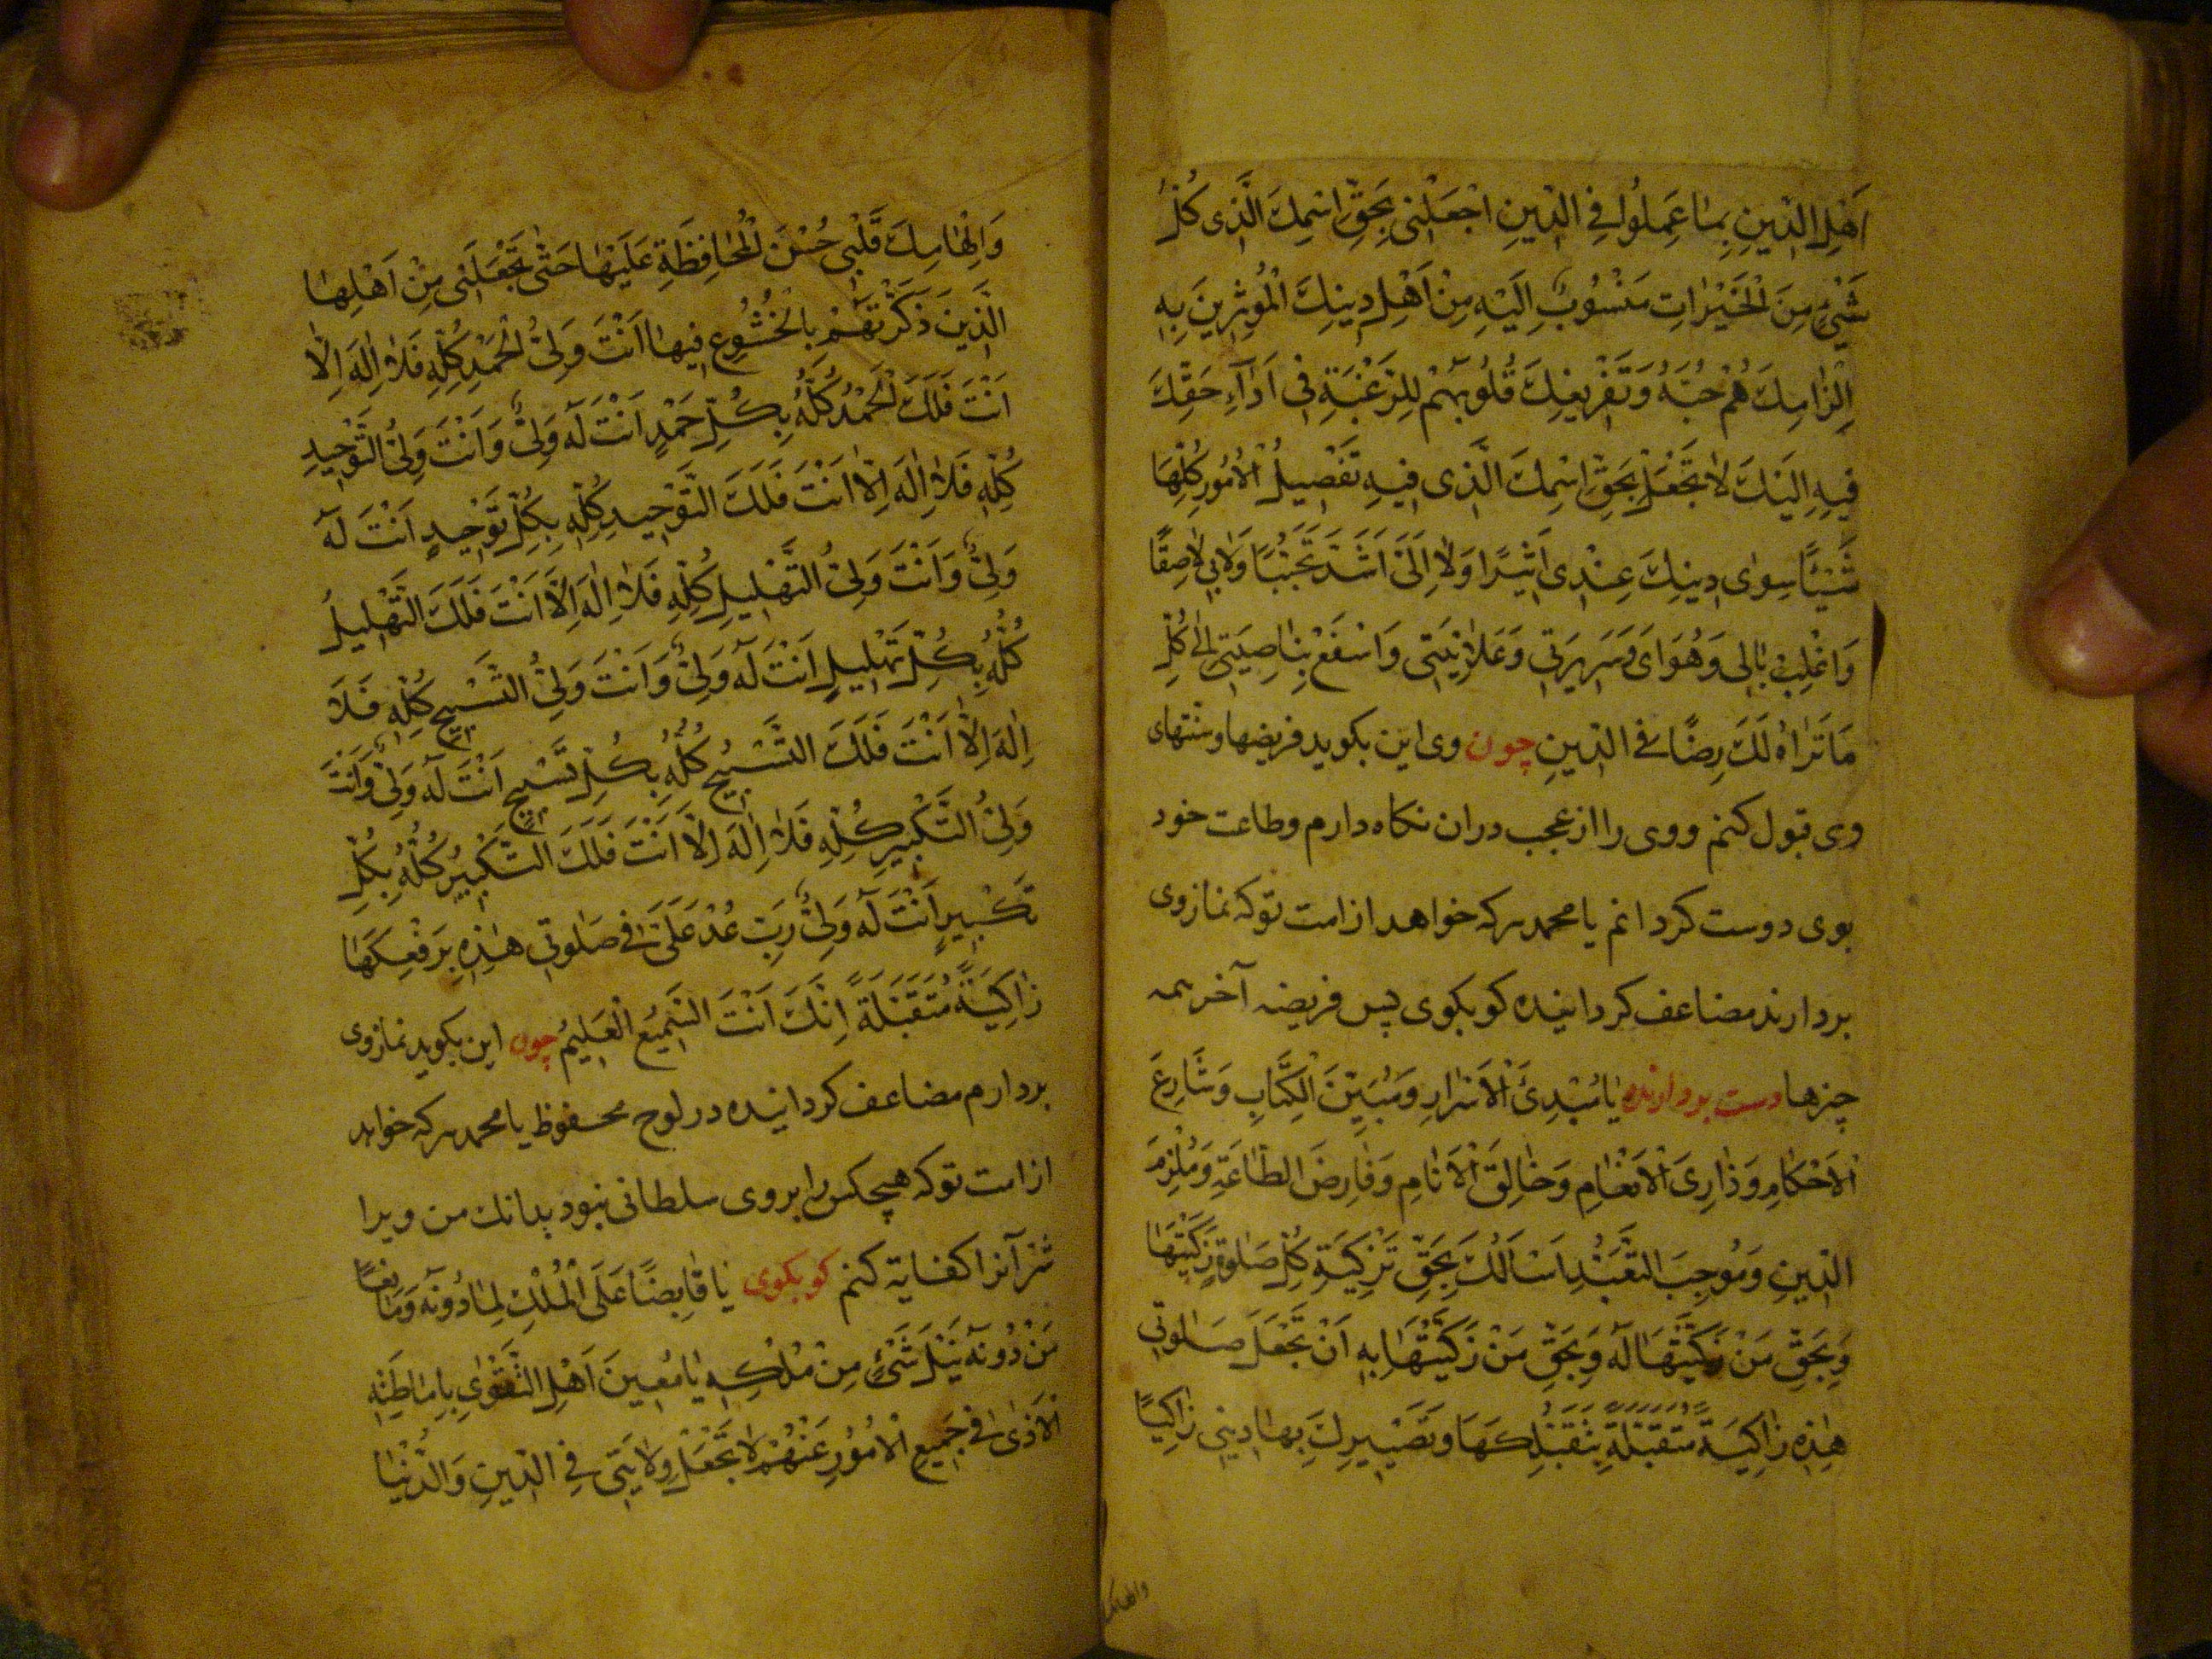 اَهْلِ الدّينِ بِمٰا عَمِلُوا فِي الدّينِ اجْعَلْني بِحَقِّ اسْمِكَ الَّذى كُلُّ
شَيْءٍ مِنَ الْخَيْرٰاتِ مَنْسُوبٌ اِلَيْهِ مِنْ اَهْلِ دينِكَ الْمُوثِرينَ بِهِ
اِلْزٰامِكَ هُمْ حُبَّهُ وَتَفْريغِكَ قُلُوبَهُمْ لِلرَّغْبَةِ فى اَدٰآءِ حَقِّكَ
فيهِ اِلَيْكَ لاٰ تَجْعَلْ بِحَقِّ اسْمِكَ الَّذى فيهِ تَفْصيلُ الْاُمُورِ كُلِّهٰا
شَيْئًا سِوٰى دينِكَ عِنْدى اَثيرًا وَلاٰ اِلَىَّ اَشَدَّ تَحَبُّبًا وَلاٰ بي لاٰصِقًا
وَاغْلِبْ بٰالى وَهَوٰاىَ وَسَريرَتي وَعَلاٰنِيَتى وَاسْفَعْ بِنٰاصِيَتى اِلىٰ كُلِّ
مٰا تَرٰاهُ لَكَ رِضًا فى الدّينِ چون وى اين بكويد فريضها وسنتهاى
وى قبول كنم ووى را از عجب دران نكاه دارم وطاعت خود
بوى دوست كردانم يا محمد هركه خواهد از امت تو كه نماز وى
بردارند مضاعف كردانيده كو بكوى پس فريضه آخر همه
چيزها دست بردارنده يٰا مُبْدِئَ الْاَسْرٰارِ وَمُبَيِّنَ الْكِتٰابِ وَشٰارِعَ
الْاَحْكٰامِ وَذٰارِئَ الْاَنْعٰامِ وَخٰالِقَ الْاَنٰامِ وَفٰارِضَ الطّٰاعَةِ وَمُلْزِمَ
الدّينِ وَمُوجِبَ التَّعَبُّدِ اَسْاَلُكَ بِحَقِّ تَزْكِيَةِ كُلِّ صَلٰوةٍ زَكَّيْتَهٰا
وَبِحَقِّ مَنْ زَكَّيْتَهٰا لَهُ وَبِحَقِّ مَنْ زَكَّيْتَهٰا بِهِ اَنْ تَجْعَلَ صَلٰوتي
هٰذِهِ زٰاكِيَةً مُتَقَبَّلَةً بِتَقَبُّلِكَهٰا وَتَصْييرِكَ بِهٰا ديني زٰاكِيًا
والهامك
وَاِلْهٰامِكَ قَلْبى حُسْنَ الْمُحٰافِظَةِ عَلَيْهٰا حَتّٰى تَجْعَلَنى مِنْ اَهْلِهٰا
الَّذينَ ذَكَّرْتَهُمْ بِالْخُشُوعِ فيهٰا اَنْتَ وَلِىُّ الْحَمْدِ كُلِّهِ فَلاٰ اِلٰهَ اِلّٰا
اَنْتَ فَلَكَ الْحَمْدُ كُلُّهُ بِكُلِّ حَمْدٍ اَنْتَ لَهُ وَلِىٌّ وَاَنْتَ وَلِىُّ التَّوْحيدِ
كُلِّهِ فَلاٰ اِلٰهَ اِلّٰا اَنْتَ فَلَكَ التَّوْحيدِ كُلِّهِ بِكُلِّ تَوْحيدٍ اَنْتَ لَهُ
وَلِىٌّ وَاَنْتَ وَلِىُّ التَّهْليلِ كُلِّهِ فَلاٰ اِلٰهَ اِلّٰا اَنْتَ فَلَكَ التَّهْليلُ
كُلُّهُ بِكُلِّ تَهْليلٍ اَنْتَ لَهُ وَلِىٌّ وَاَنْتَ وَلِىُّ التَّسْبيحِ كُلِّهِ فَلاٰ
اِلٰهَ اِلّٰا اَنْتَ فَلَكَ التَّسْبيحُ كُلُّهُ بِكُلِّ تَسْبيحٍ اَنْتَ لَهُ وَلِىٌّ وَاَنْتَ
وَلِىُّ التَّكْبيرِ كُلِّهِ فَلاٰ اِلٰهَ اِلّٰا اَنْتَ فَلَكَ التَّكْبيرُ كُلُّهُ بِكُلِّ
تَكْبيرٍ اَنْتَ لَهُ وَلِىٌّ رَبِّ عُدْ عَلَىَّ فى صَلٰوتي هٰذِهِ بِرَفْعِكَهٰا
زٰاكِيَةً مُتَقَبَّلَةً اِنَّكَ اَنْتَ السَّميعُ الْعَليمُ چون اين بكويد نماز وى
بردارم مضاعف كردانيده در لوح محفوظ يا محمد هركه خواهد
از امت تو كه هيچكس را بر وى سلطانى نبود بدانك من ويرا
شر آنرا كفاية كنم كو بكوى يٰا قٰابِضًا عَلَى الْمُلْكِ لِمٰا دُونَهُ وَمٰانِعًا
مَنْ دُونَهُ نَيْلَ شَىْءٍ مِنْ مُلْكِهِ يٰا مُعينَ اَهْلِ التَّقْوٰى بِاِمٰاطَتِهِ
الْاَذٰى فى جَميعِ الْاُمُورِ عَنْهُمْ لاٰ تَجْعَلْ وِلاٰيَتى فِي الدّينِ وَالدُّنْيٰا